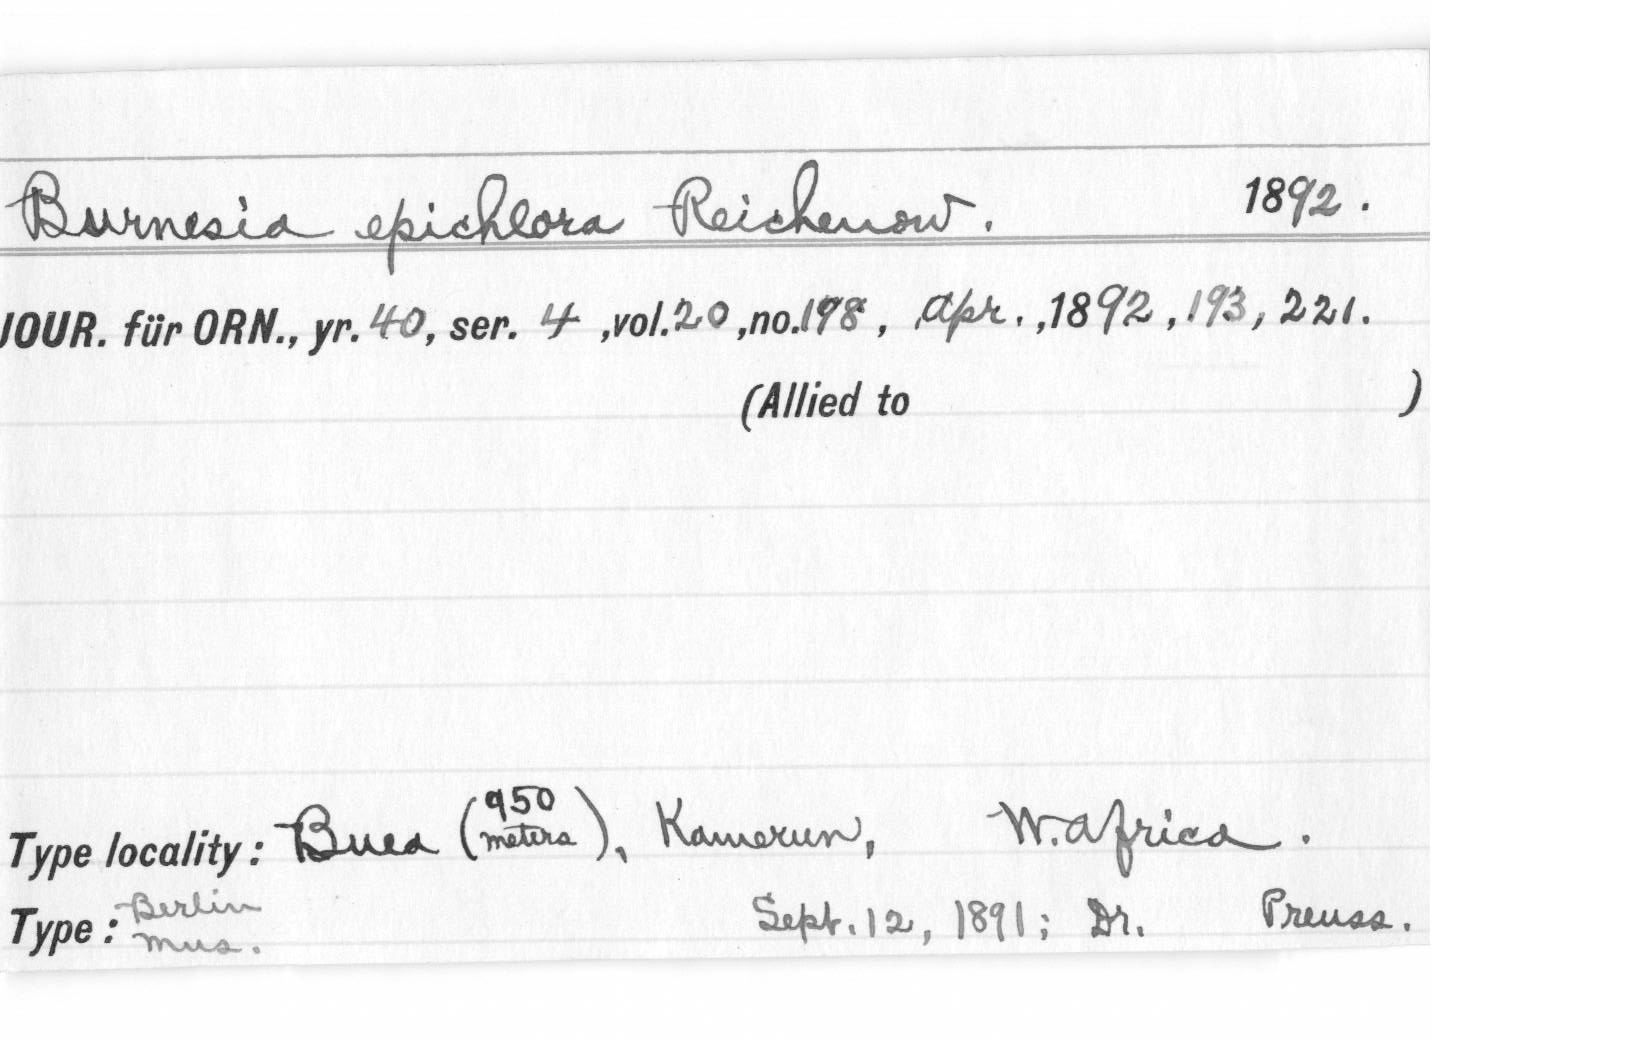 Burnesia epichlora Reichenow. 1892.
JOUR. für ORN., yr. 40, ser. 4, vol. 20, no. 198, Apr., 1892, 193, 221.
(Allied to )
Type locality: Buea (950 meters), Kamerun, W. Africa.
Type: Berlin Mus. Sept. 12, 1891; Dr. Preuss.